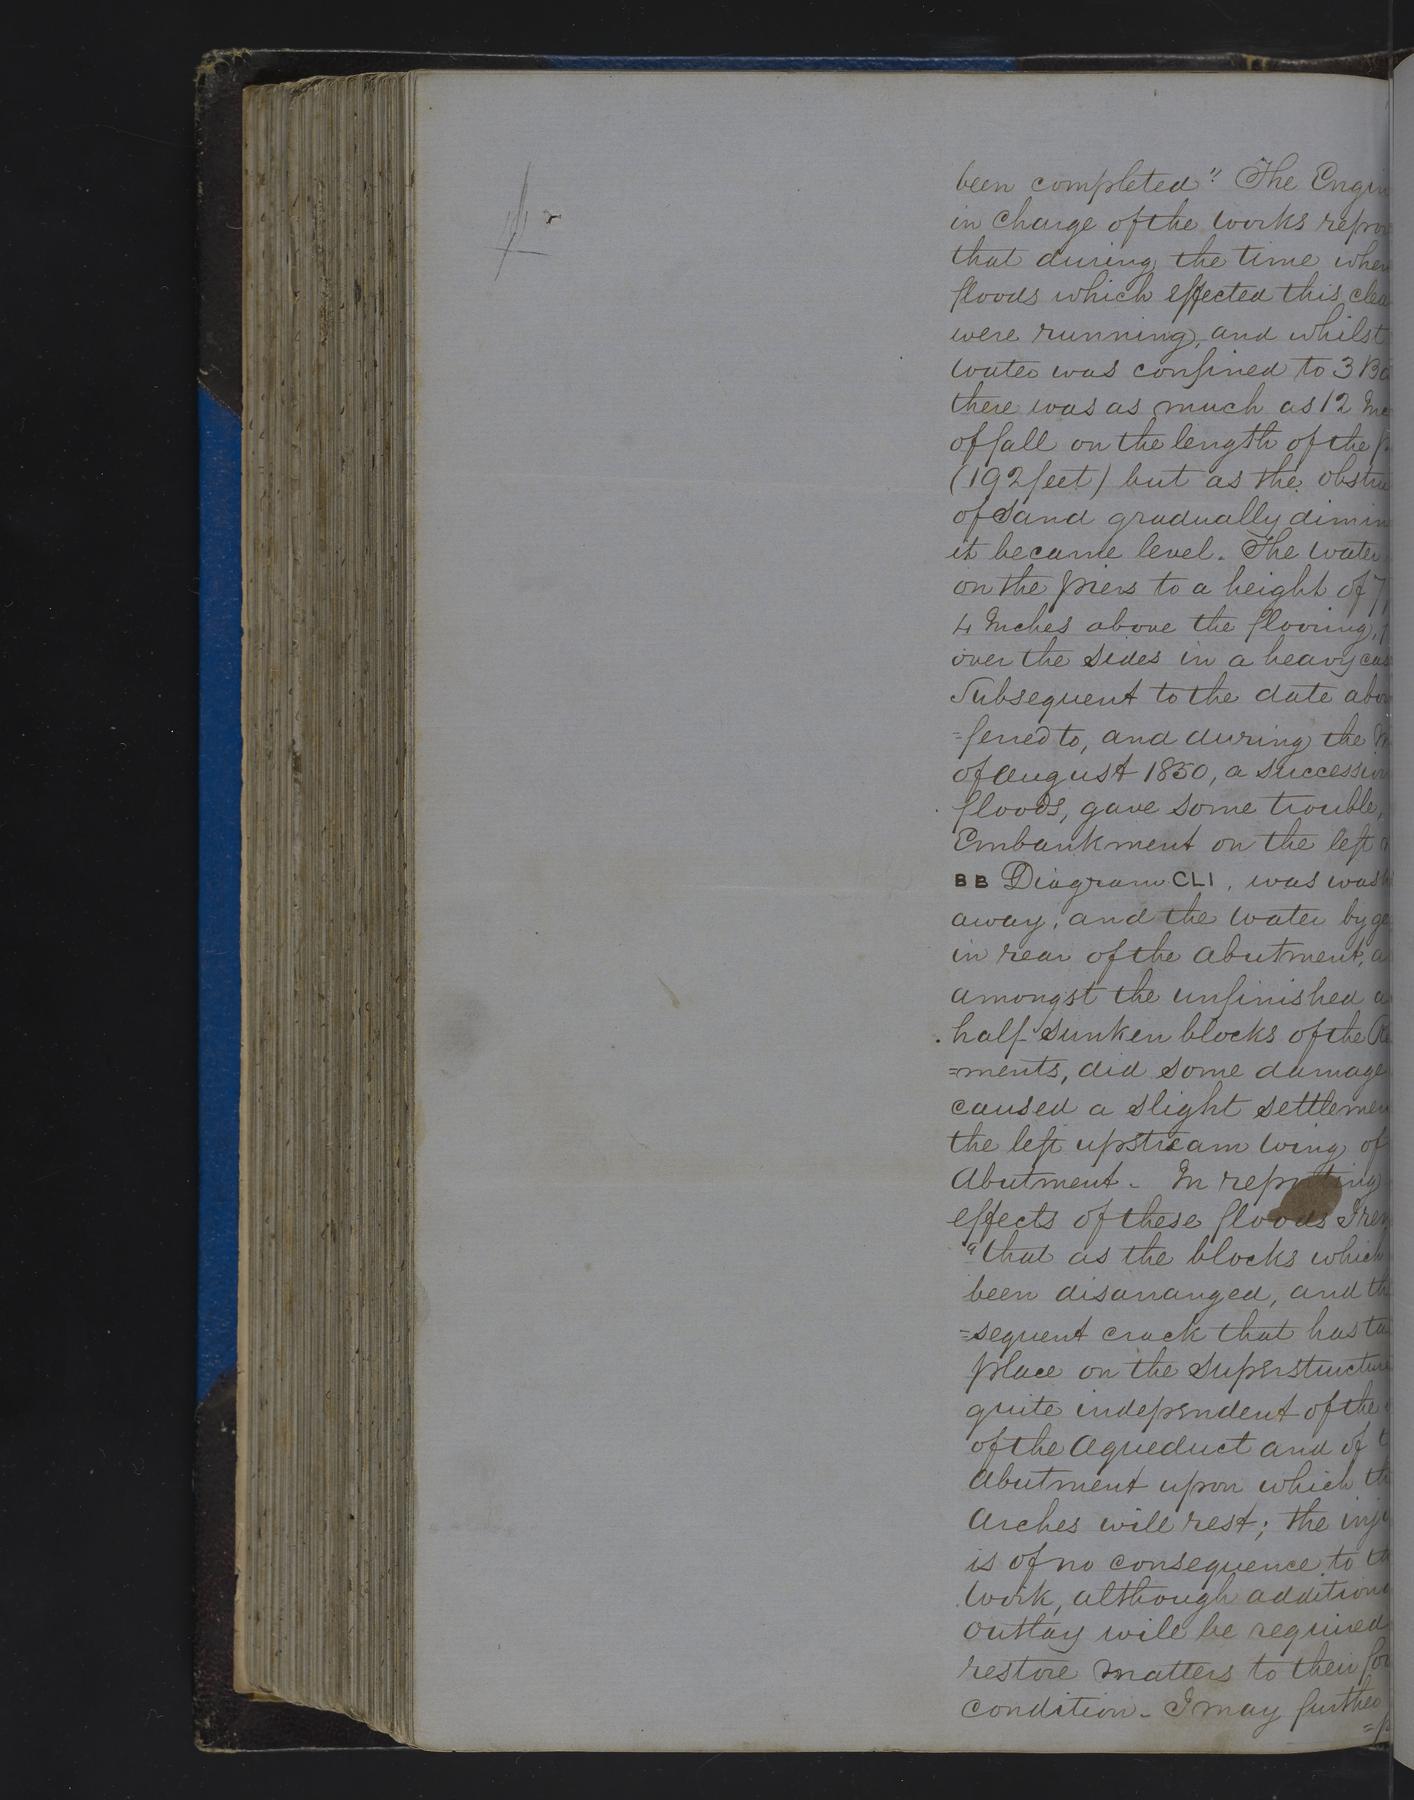 been completed". The Engin
in charge of the works repor
that during the time when
floods which effected this clea
were running, and whilst
water was confined to 3 Ba
there was as much as 12 Inc
of fall on the length of the
(192 feet) but as the obstru
of Sand gradually dimin
it became level. The water
on the piers to a height of 7
4 Inches above the flooring,
over the sides in a heavy cas
Subsequent to the date abov
=ferred to, and during the
of August 1850, a succession
floods, gave some trouble,
Embankment on the left
BB Diagram CLI, was wash
away, and the water by ge
in rear of the Abutment, a
amongst the unfinished a
half-sunken blocks of the
=ments, did some damage
caused a slight settlemen
the left upstream wing of
Abutment - In reporting
effects of these floods I rem
"that as the blocks which
been disarranged, and th
=sequent crack that has ta
place on the Superstructure
quite independent of the
of the Aqueduct and of t
Abutment upon which th
Arches will rest; the inju
is of no consequence to th
work, although additiona
outlay will be required
restore matters to their for
condition - I may further